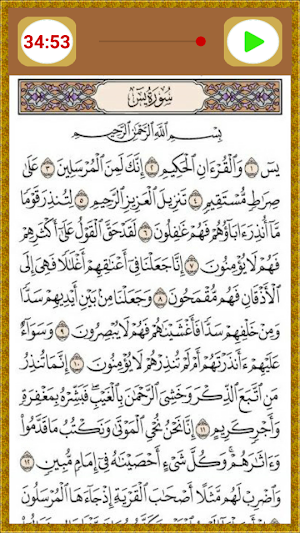 34:53
سُورَةُ يسٓ
بِسْمِ ٱللَّهِ ٱلرَّحْمَٰنِ ٱلرَّحِيمِ
يسٓ ١ وَٱلْقُرْءَانِ ٱلْحَكِيمِ ٢ إِنَّكَ لَمِنَ ٱلْمُرْسَلِينَ ٣ عَلَىٰ
صِرَٰطٍ مُّسْتَقِيمٍ ٤ تَنزِيلَ ٱلْعَزِيزِ ٱلرَّحِيمِ ٥ لِتُنذِرَ قَوْمًا
مَّآ أُنذِرَ ءَابَآؤُهُمْ فَهُمْ غَٰفِلُونَ ٦ لَقَدْ حَقَّ ٱلْقَوْلُ عَلَىٰٓ أَكْثَرِهِمْ
فَهُمْ لَا يُؤْمِنُونَ ٧ إِنَّا جَعَلْنَا فِىٓ أَعْنَٰقِهِمْ أَغْلَٰلًا فَهِىَ إِلَى
ٱلْأَذْقَانِ فَهُم مُّقْمَحُونَ ٨ وَجَعَلْنَا مِنۢ بَيْنِ أَيْدِيهِمْ سَدًّا
وَمِنْ خَلْفِهِمْ سَدًّا فَأَغْشَيْنَٰهُمْ فَهُمْ لَا يُبْصِرُونَ ٩ وَسَوَآءٌ
عَلَيْهِمْ ءَأَنذَرْتَهُمْ أَمْ لَمْ تُنذِرْهُمْ لَا يُؤْمِنُونَ ١٠ إِنَّمَا تُنذِرُ
مَنِ ٱتَّبَعَ ٱلذِّكْرَ وَخَشِىَ ٱلرَّحْمَٰنَ بِٱلْغَيْبِ ۖ فَبَشِّرْهُ بِمَغْفِرَةٍ
وَأَجْرٍ كَرِيمٍ ١١ إِنَّا نَحْنُ نُحْىِ ٱلْمَوْتَىٰ وَنَكْتُبُ مَا قَدَّمُوا۟
وَءَاثَٰرَهُمْ ۚ وَكُلَّ شَىْءٍ أَحْصَيْنَٰهُ فِىٓ إِمَامٍ مُّبِينٍ ١٢
وَٱضْرِبْ لَهُم مَّثَلًا أَصْحَٰبَ ٱلْقَرْيَةِ إِذْ جَآءَهَا ٱلْمُرْسَلُونَ